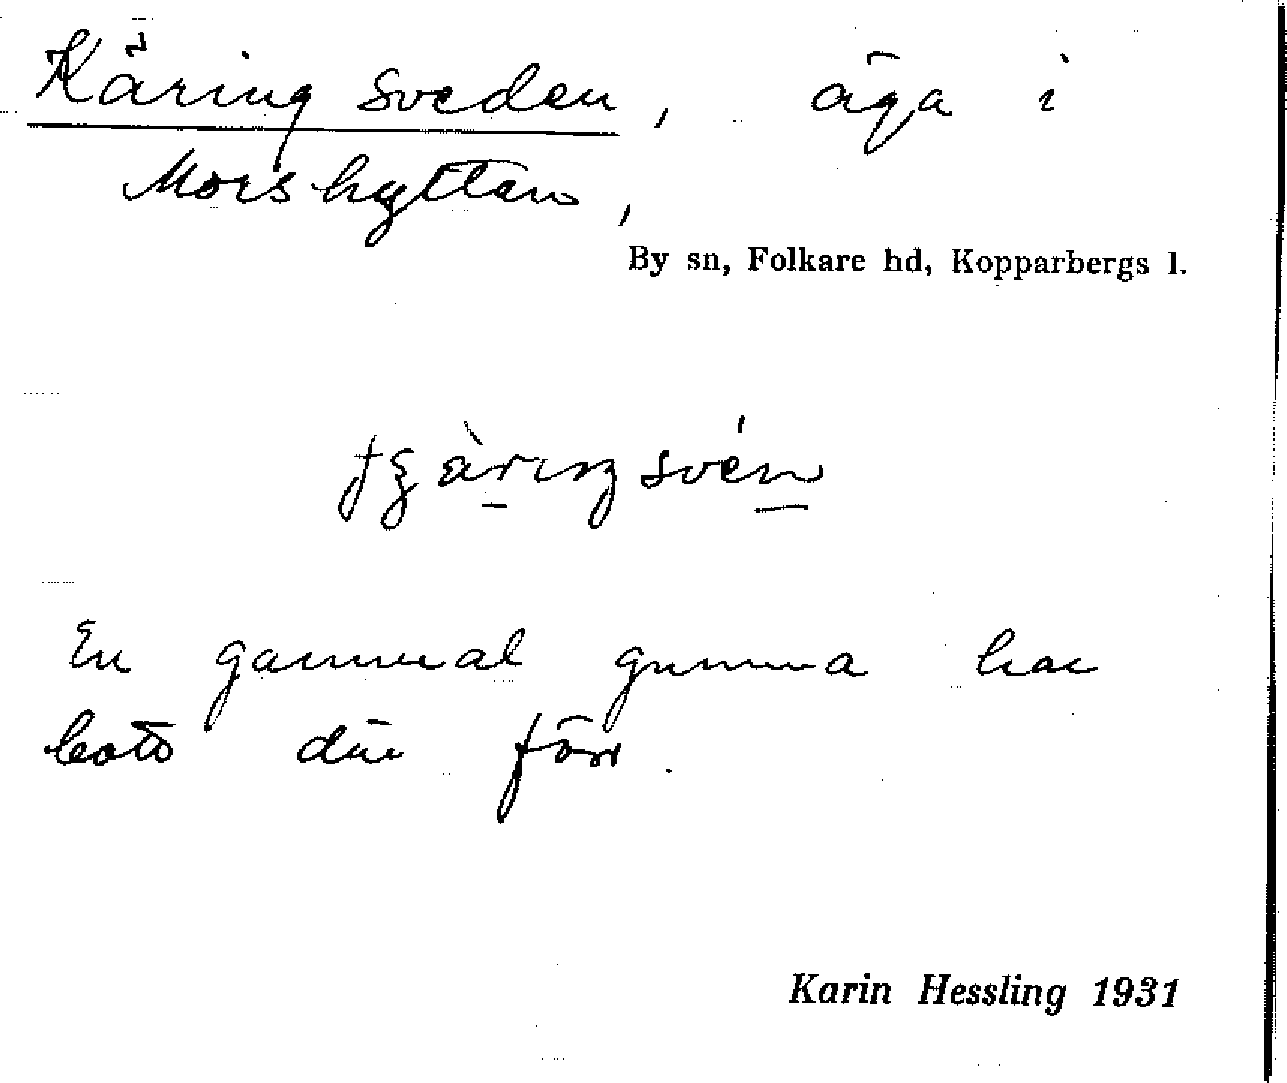 Käringsveden, äga i
Morshyttan,
By sn, Folkare hd, Kopparbergs l.
En gammal gumma har
bott där förr.
Karin Hessling 1931